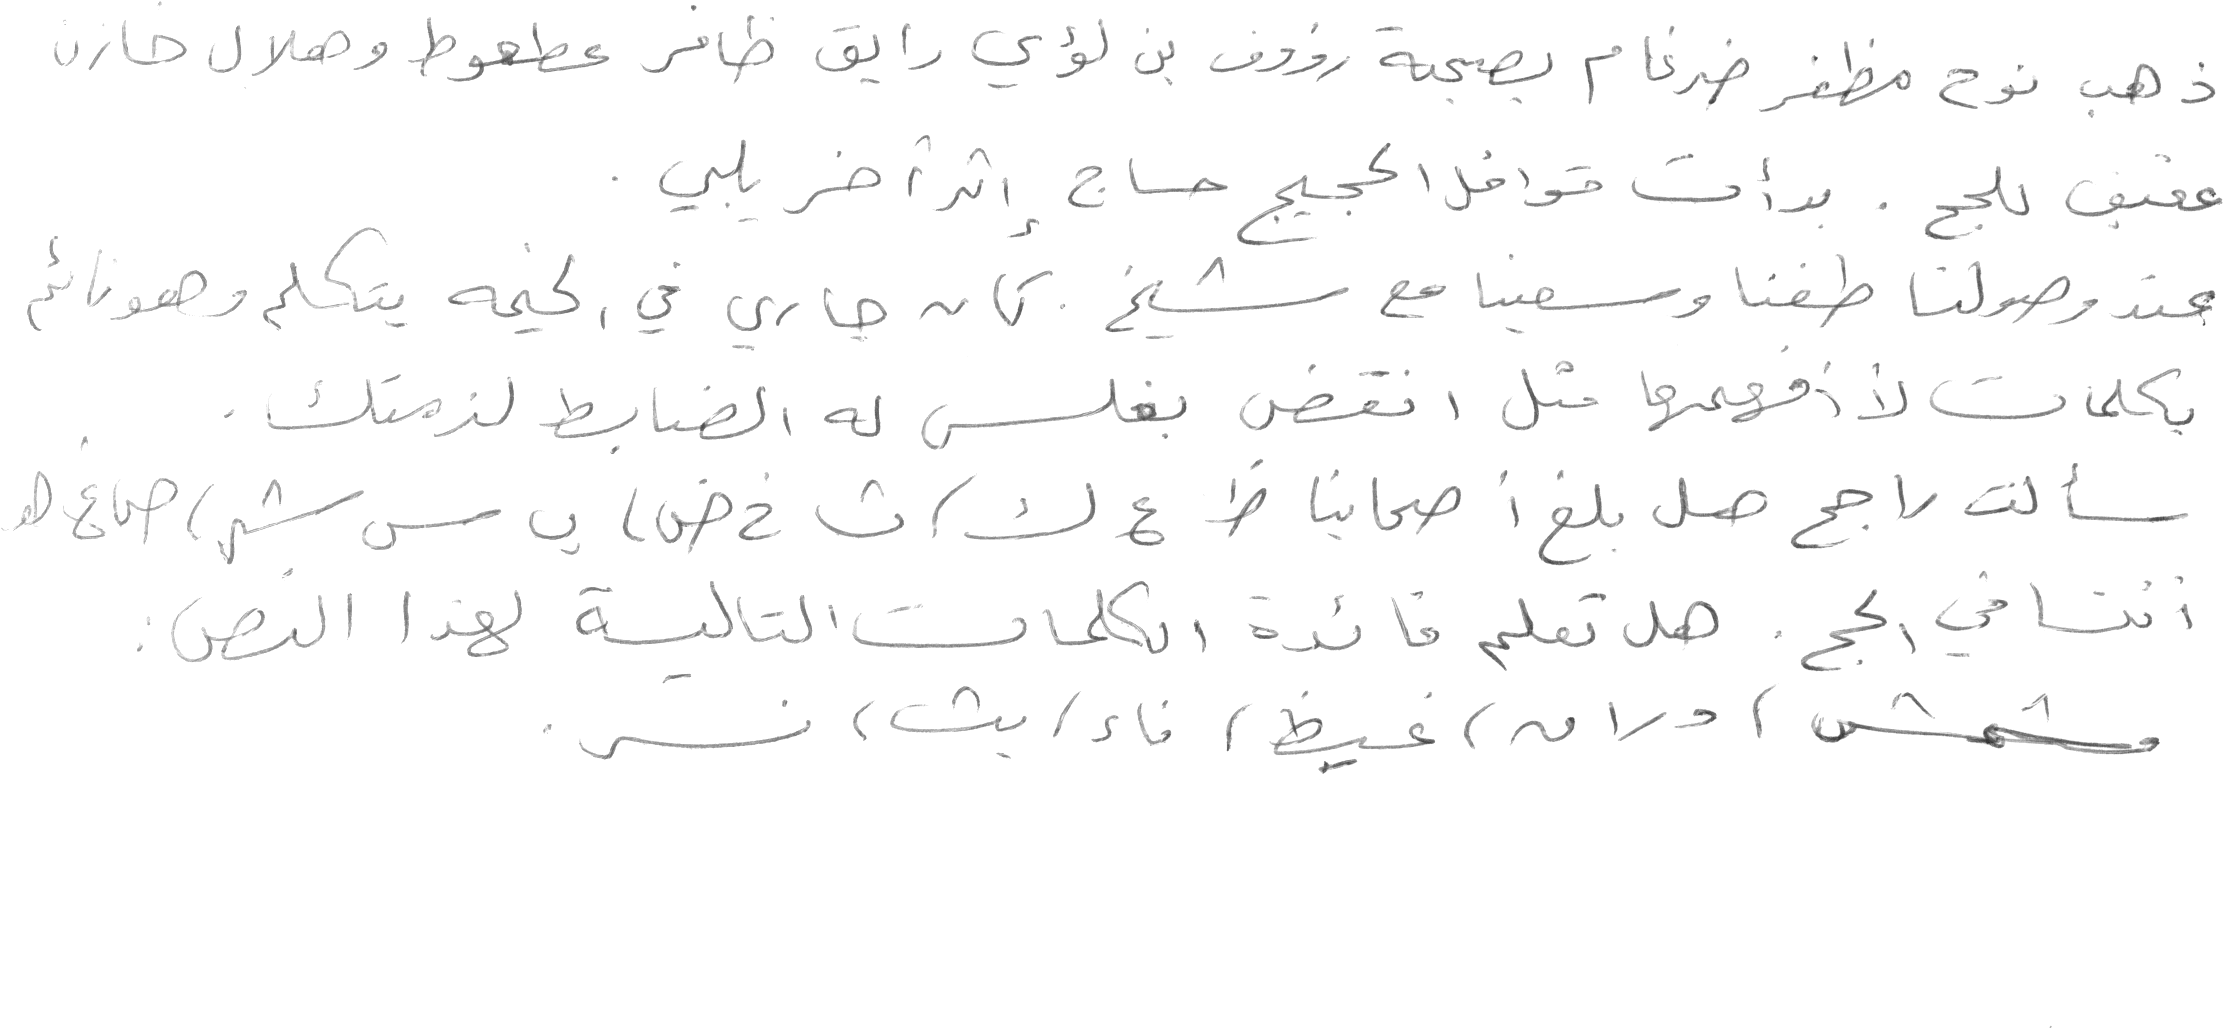 ذهب نوح مظفر ضرغام بصحبة رؤوف بن لؤي رايق ظافر عطعوط وهلال خازن
عفيف للحج . بدأت قوافل الحجيج حساج إثر آخر يلبي .
عند وصولنا طفنا وسعينا مع شيخ . كان جاري في الخيمه يتكلم وهو نائم
بكلمات لا أفهمها مثل انقض بغلس له الضابط لذمتك .
سألت راجح هل بلغ أصحابنا ظ ع ك / ث خ ض ، ب س ش ،
أننا في الحج . هل تعلم فائدة الكلمات التالية لهذا النص :
مشمش ، دران ، غيظ ، فاء ، بث ، نس .